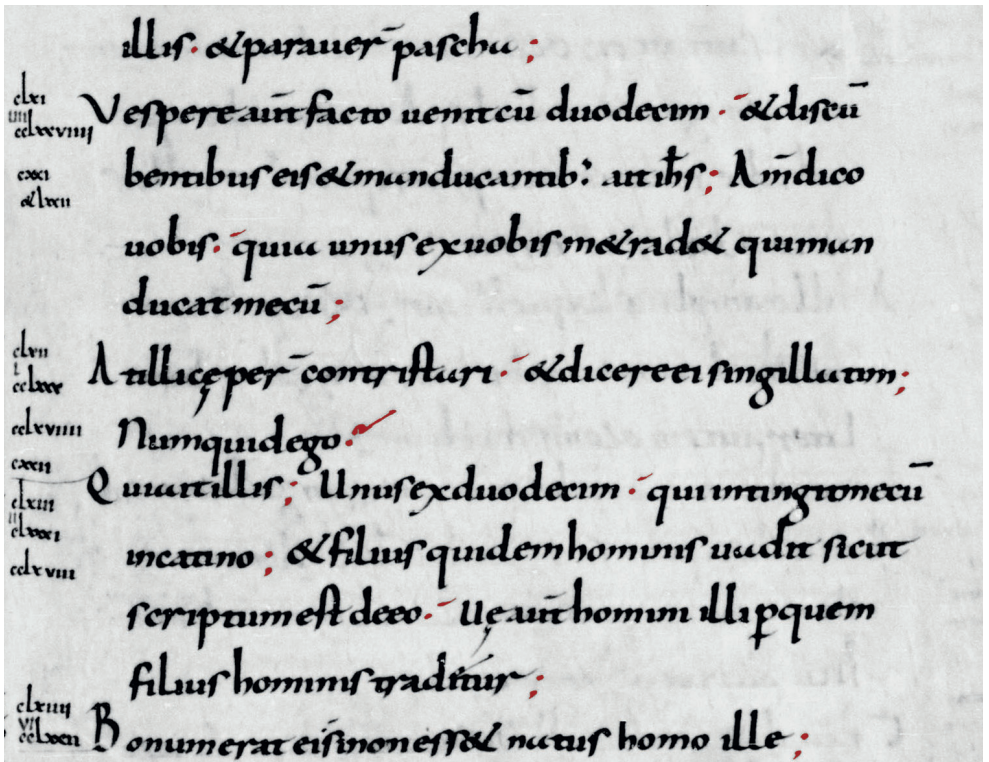 illis. & parauer̄ pascha ;
clxi
iiii
cclxxviiii
Vespere aut̄ facto uenit cū duodecim . & discū
cxxi
& lxxii
bentibus eis & manducantib: ait ih̄s ; Am̄ dico
uobis . quia unus ex uobis me &rad& qui man
ducat mecū ;
clxii
i
cclxxx
At illi cęper̄ contristari . & dicere ei singillatim ;
cclxviiii
Numquid ego .
cxxii
Qui ait illis ; Unus ex duodecim . qui intingit mecū
clxiii
ii
clxxxi
in catino ; & filius quidem hominis uadit sicut
cclxviii
scriptum est de eo . Uę aut̄ homini illi ꝑ quem
filius hominis tradetur ;
clxiiii
vi
cclxxxii
Bonum erat ei si non ess& natus homo ille ;